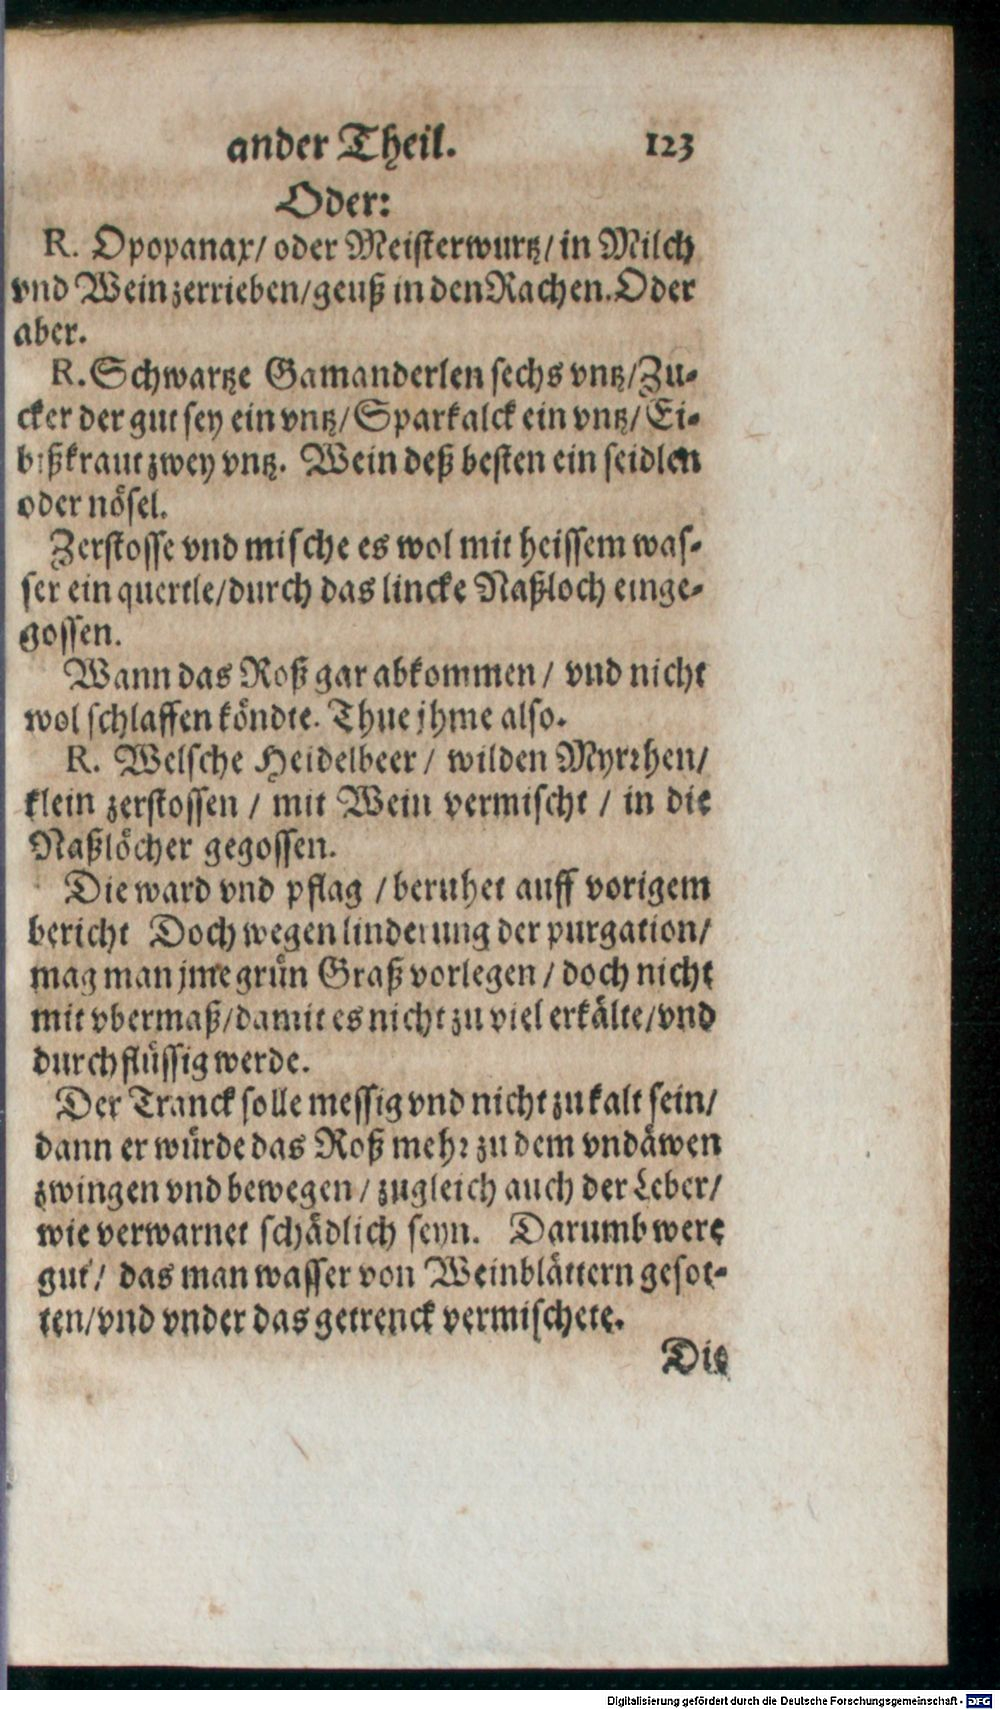 ander Theil. 123
Oder:
R. Opopanax/ oder Meisterwurtz/ in Milch
vnd Wein zerrieben/geuß in den Rachen. Oder
aber.
R. Schwartze Gamanderlen sechs vntz/Zu-
cker der gut sey ein vntz/Sparkalck ein vntz/Ei-
bißkraut zwey vntz. Wein deß besten ein seidlen
oder nösel.
Zerstosse vnd mische es wol mit heissem was-
ser ein quertle/durch das lincke Naßloch einge-
gossen.
Wann das Roß gar abkommen/ vnd nicht
wol schlaffen köndte. Thue jhme also.
R. Welsche Heidelbeer/ wilden Myrrhen/
klein zerstossen/ mit Wein vermischt/ in die
Naßlöcher gegossen.
Die ward vnd pflag/beruhet auff vorigem
bericht Doch wegen linderung der purgation/
mag man jme grün Graß vorlegen/ doch nicht
mit vbermaß/damit es nicht zu viel erkälte/vnd
durchflüssig werde.
Der Tranck solle messig vnd nicht zu kalt sein/
dann er würde das Roß mehr zu dem vndäwen
zwingen vnd bewegen/ zugleich auch der Leber/
wie verwarnet schädlich seyn. Darumb were
gut/ das man wasser von Weinblättern gesot-
ten/vnd vnder das getrenck vermischete.
Die
Digitalisierung gefördert durch die Deutsche Forschungsgemeinschaft - DFG